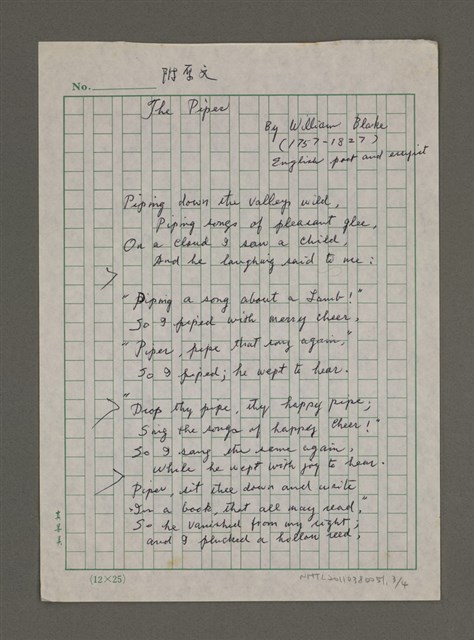 附原文
No.
The Piper
By William Blake
(1757-1827)
English poet and
Piping down the valleys wild,
Piping songs of pleasant glee,
On a cloud I saw a child,
And he laughing said to me:
"Piping a song about a Lamb!"
So I piped with merry cheer,
"Piper, pipe that song again,"
So I piped; he wept to hear.
"Drop thy pipe, thy happy pipe;
Sing the songs of happy cheer!"
So I sang the same again,
While he wept with joy to hear.
Piper, sit thee down and write
In a book, that all may read,"
So he vanished from my sight;
and I plucked a hollow reed,
(12×25)
NMTL20110980051 3/4